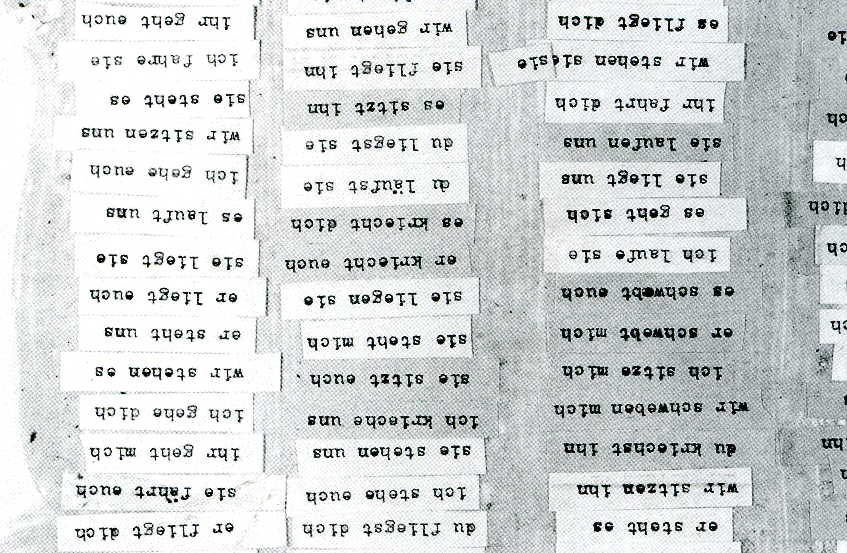 ihn
dich
er steht es
wir sitzen ihn
du kriechst ihn
wir schweben mich
ich sitze mich
er schwebt mich
es schwebt euch
ich laufe sie
es geht sich
sie liegt uns
sie laufen uns
ihr fahrt dich
wir stehen sie sie
es fliegt dich
du fliegst dich
ich stehe euch
sie stehen uns
ich krieche uns
sie sitzt euch
sie steht mich
sie liegen sie
er kriecht euch
es kriecht dich
du läufst sie
du liegst sie
es sitzt ihn
sie fliegt ihn
wir gehen uns
er fliegt dich
sie fährt euch
ihr geht mich
ich gehe dich
wir stehen es
er steht uns
er liegt euch
sie liegt sie
es lauft uns
ich gehe euch
wir sitzen uns
sie steht es
ich fahre sie
ihr geht euch